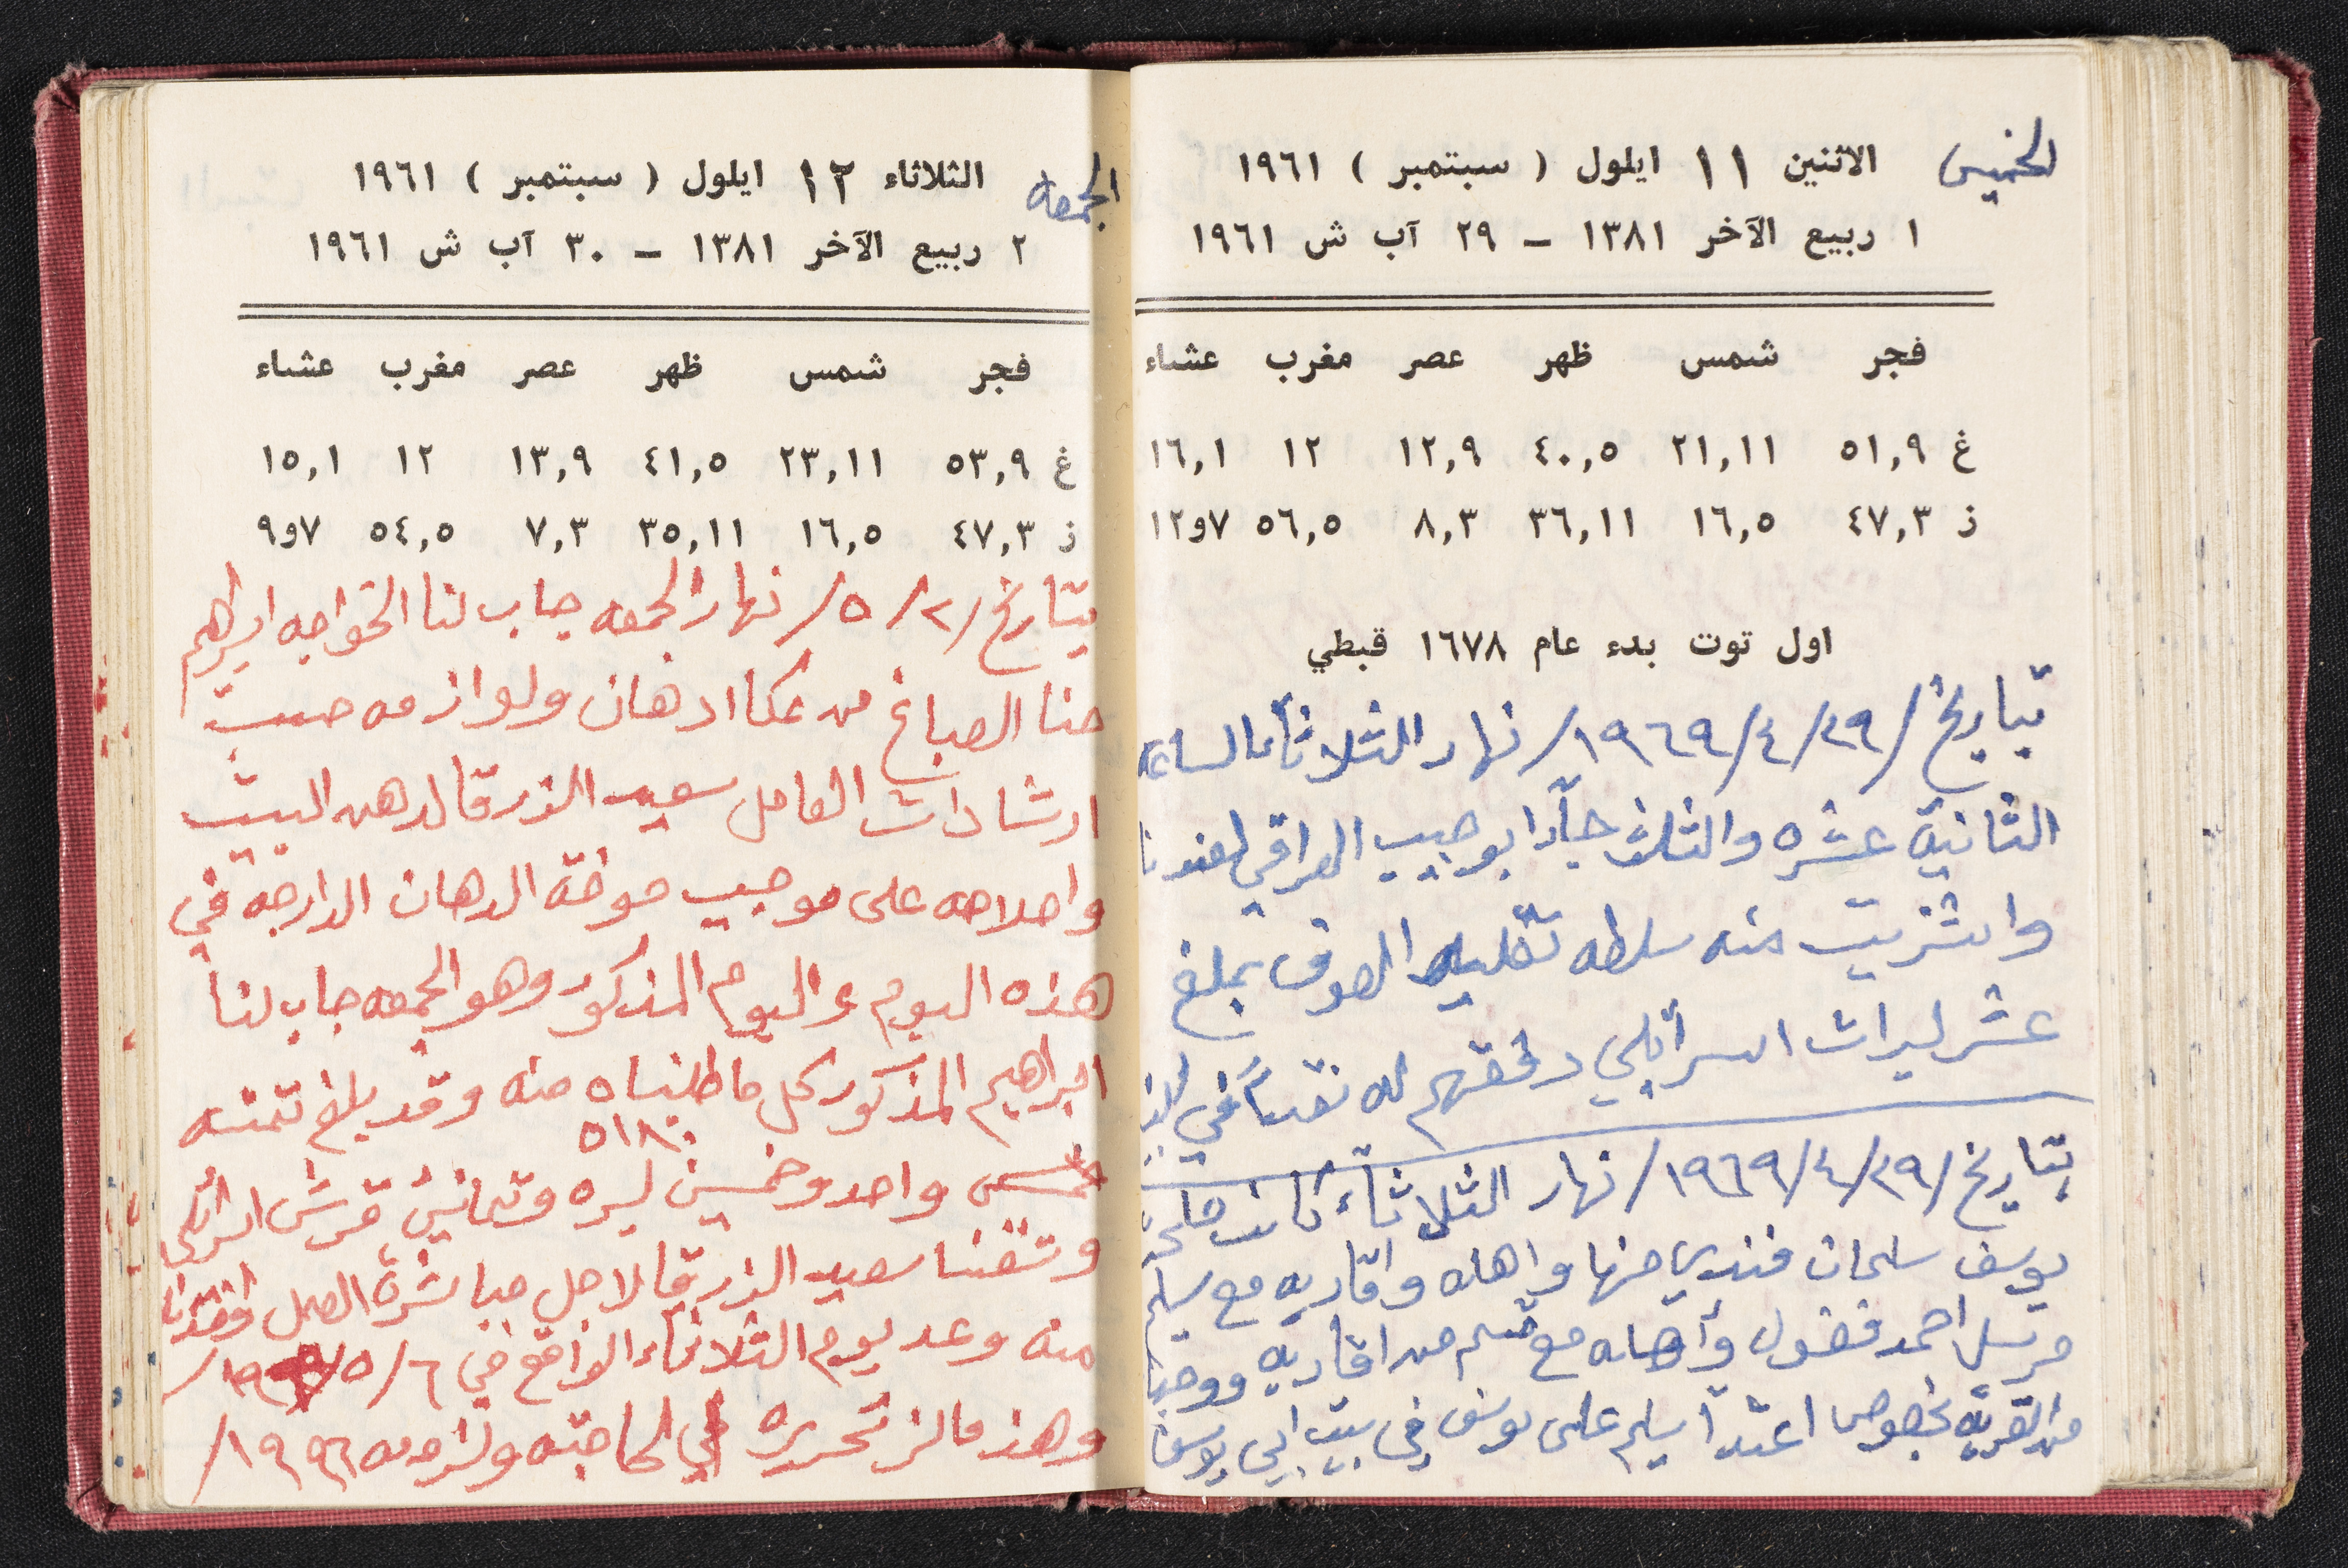 الخميس
الاثنين ١١ ايلول ( سبتمبر ) ١٩٦١
١ ربيع الآخر ١٣٨١ – ٢٩ آب ش ١٩٦١
فجر شمس ظهر عصر مغرب عشاء
غ ٥١,٩ ٢١,١١ ٤٠,٥ ١٢,٩ ١٢ ١٦,١
ز ٤٧,٣ ١٦,٥ ٣٦,١١ ٨,٣ ٥٦,٥ ٧و١٢
اول توت بدء عام ١٦٧٨ قبطي
بتاريخ /٢٩/٤/١٩٦٩/ نهار الثلاثاء الساعه
الثانية عشره والثلث جآ ابو حبيب العراقي لعندنا
واشتريت منه سلطه تقليد الصوف بمبلغ
عشر ليرات اسرائلي دفعتهم له نقداً في
بتاريخ /٢٩/٤/١٩٦٩/ نهار الثلاثاء كانت صلحة
يوسف سلمان فندي منها واهله واقاربه مع سليم
مرسل احمد فضول وأهله مع قسم من اقاربه ووجها
من القرية بخصوص اعتدآ سليم على يوسف في بيت ابي يوسف
الجمعه
الثلاثاء ١٢ ايلول ( سبتمبر ) ١٩٦١
٢ ربيع الآخر ١٣٨١ – ٣٠ آب ش ١٩٦١
فجر شمس ظهر عصر مغرب عشاء
غ ٥٣,٩ ٢٣,١١ ٤١,٥ ١٣,٩ ١٢ ١٥,١
ز ٤٧,٣ ١٦,٥ ٣٥,١١ ٧,٣ ٥٤,٥ ٧و٩
بتاريخ /٢/٥/ نهار الجمعه جاب لنا الخواجه ابراهيم
حنا الصباغ من عكا ادهان ولوازمه حسب
ارشادات العامل سعيد الزرقا لدهن البيت
واصلاحه على موجب موضة الدهان الدارجة في
هذه اليوم واليوم المذكور وهو الجمعه جاب لنا
ابراهيم المذكور كل ما طلبناه منه وقد بلغ ثمنه
٥١٨٠
واحد وخمسين ليره وثمانين قرش اسرائلي
سعيد الزرقا لاجل مباشرة العمل
منه وعد يوم الثلاثاء الواقع في ٦/٥/
وهذ ما لزم تحريره لحاجته ولزومه